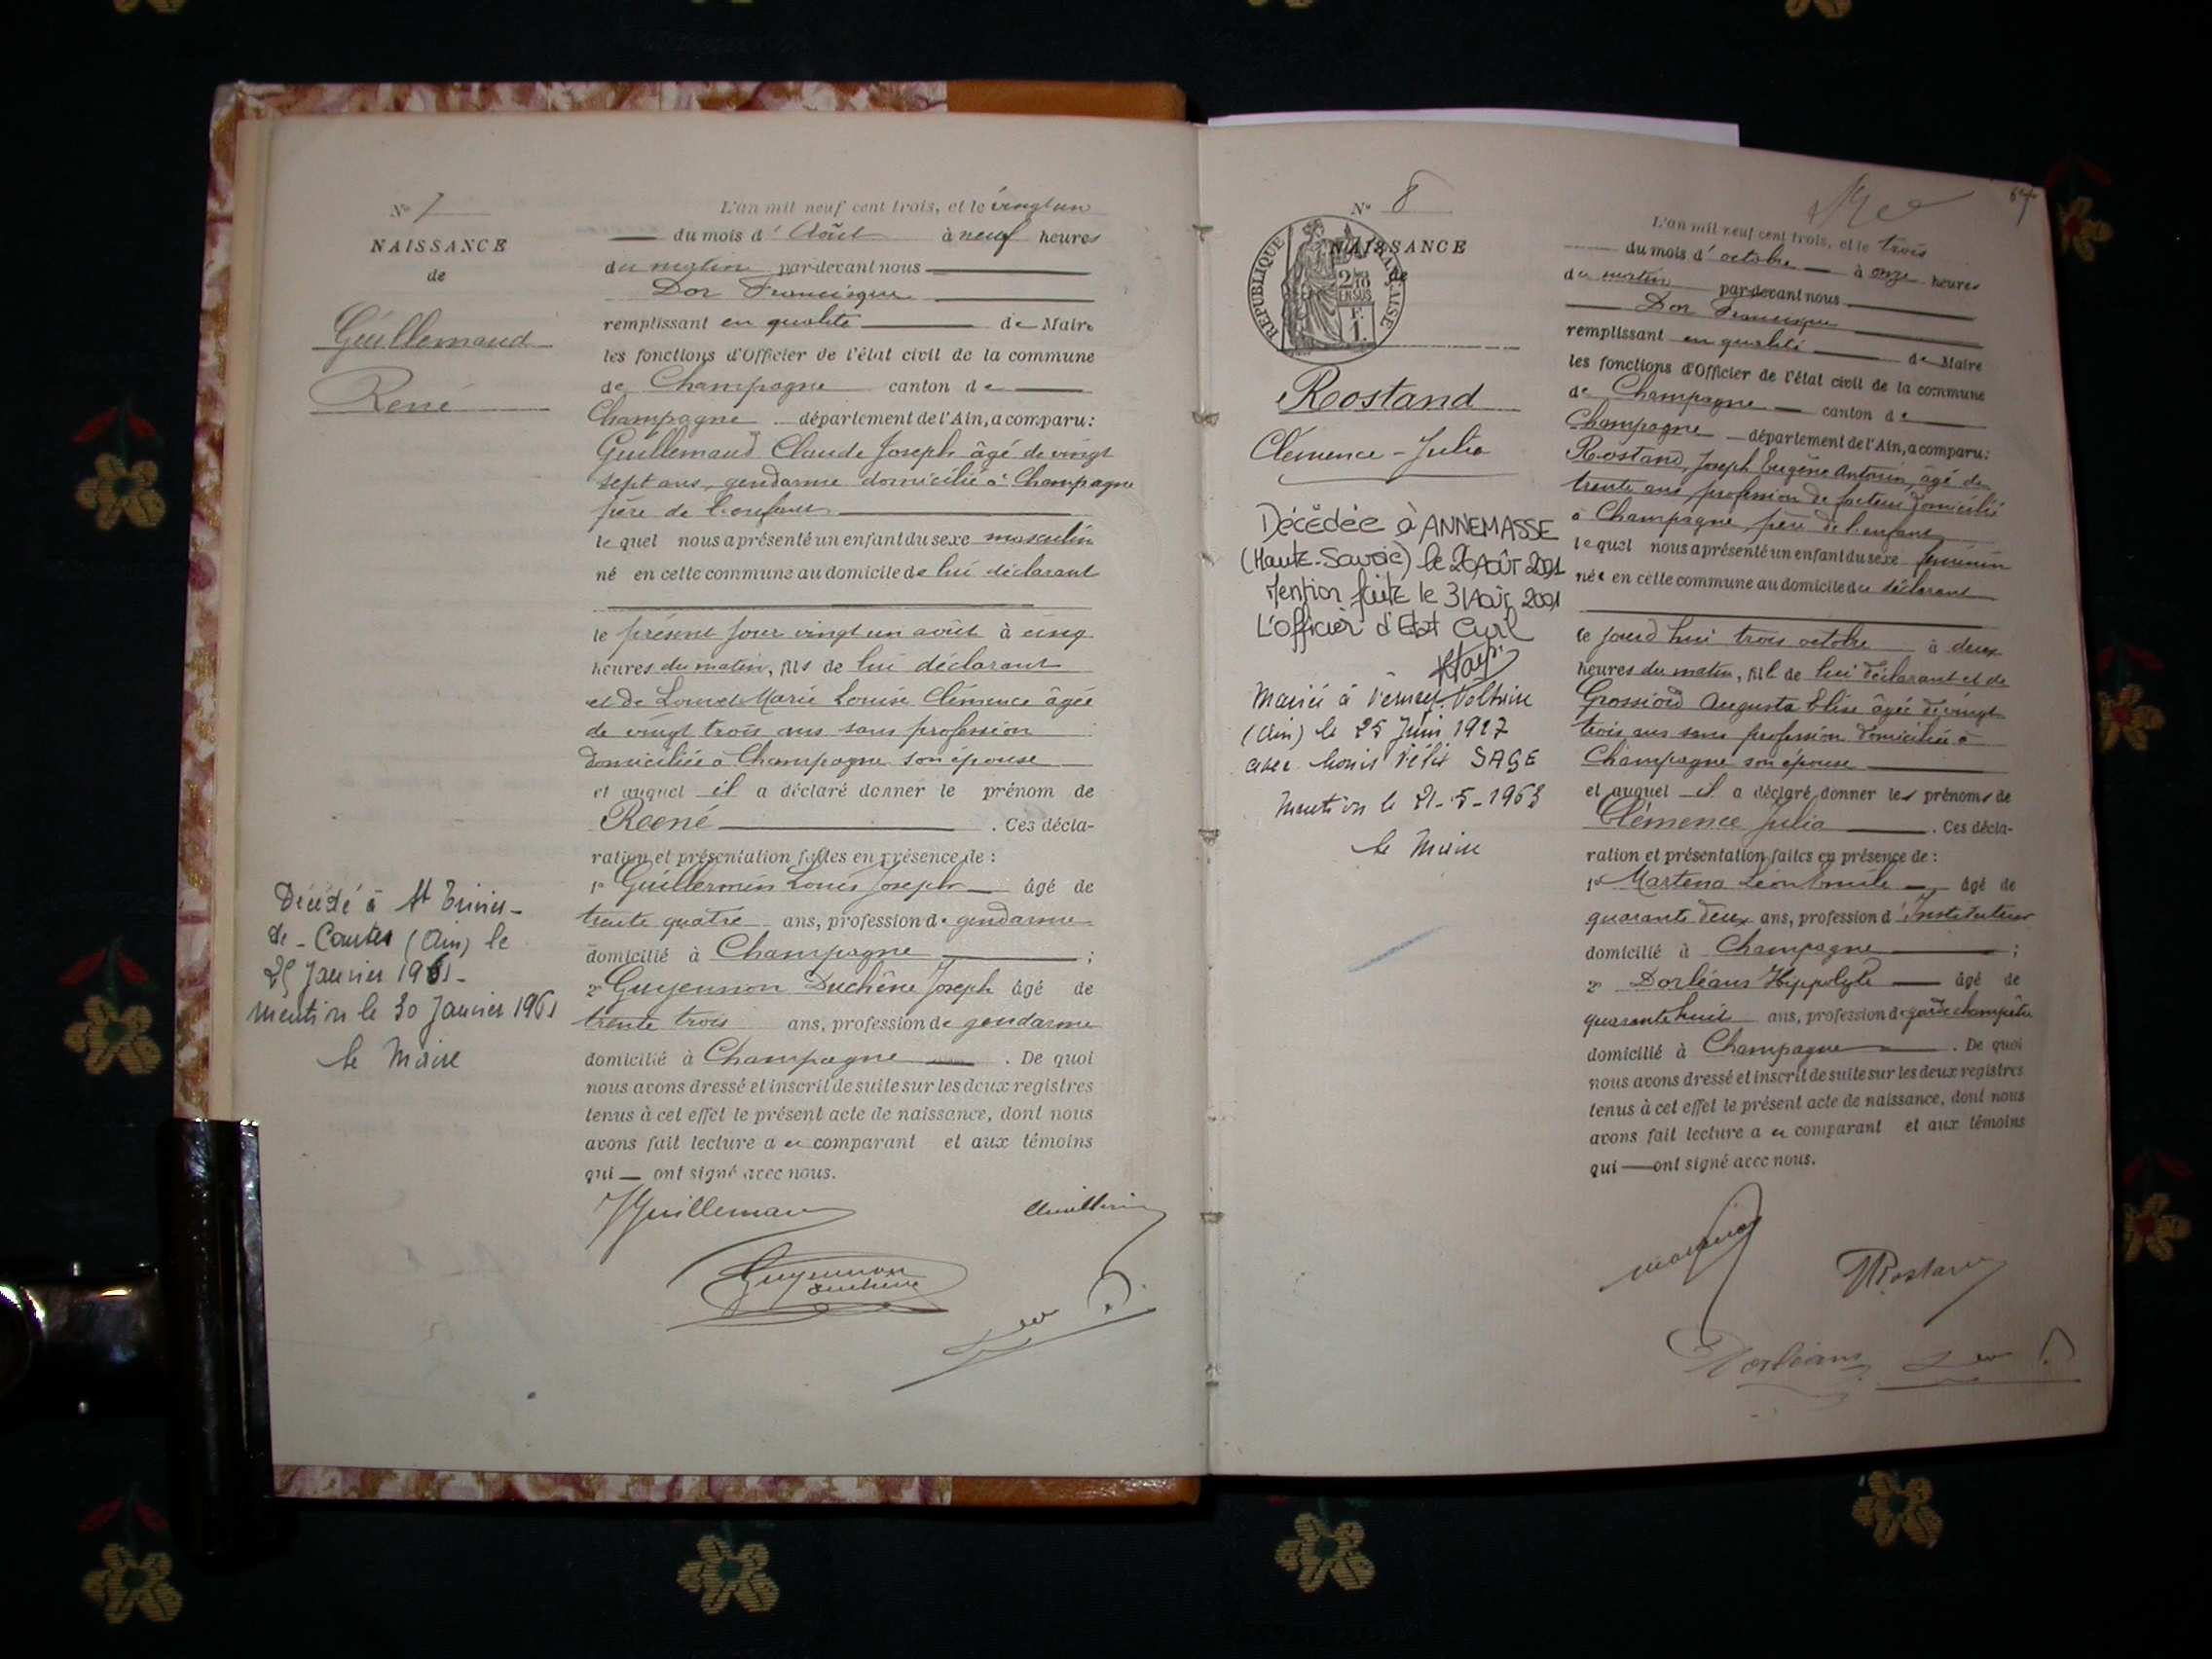 Nº 7
NAISSANCE
de
Guillemaud
René
Décédé à St Trivier-
de-Courtes (Ain) le
25 Janvier 1961-
mention le 30 Janvier 1961
le Maire
L'an mil neuf cent trois, et le vingt un
du mois d'Août à neuf heures
du matin par-devant nous
Dor Francisque
remplissant en qualité de Maire
les fonctions d'Officier de l'état civil de la commune
de Champagne canton de
Champagne département de l'Ain, a comparu:
Guillemaud Claude Joseph âgé de vingt
sept ans, gendarme domicilié à Champagne
père de l'enfant
lequel nous a présenté un enfant du sexe masculin
né en cette commune au domicile de lui déclarant
le présent jour vingt un août à cinq
heures du matin, fils de lui déclarant
et de Louvet Marie Louise Clémence âgée
de vingt trois ans sans profession
domiciliée à Champagne son épouse
et auquel il a déclaré donner le prénom de
René . Ces décla-
ration et présentation faites en présence de :
1º Guillermin Louis Joseph âgé de
trente quatre ans, profession de gendarme
domicilié à Champagne ;
2º Guyennon Duchêne Joseph âgé de
trente trois ans, profession de gendarme
domicilié à Champagne . De quoi
nous avons dressé et inscrit de suite sur les deux registres
tenus à cet effet le présent acte de naissance, dont nous
avons fait lecture au comparant et aux témoins
qui ont signé avec nous.
Guillemaud
Guillermin
Guyennon
Duchêne
Nº 8
NAISSANCE
RÉPUBLIQUE FRANÇAISE
2/10
EN SUS
F.
1.
Rostand
Clémence-Julia
Décédée à ANNEMASSE
(Haute-Savoie) le 26 AOÛT 2001
Mention faite le 31 Août 2001
L'officier d'Etat Civil
Mariée à Ferney-Voltaire
(Ain) le 25 Juin 1927
avec Louis Félix SAGE
Mention le 21-5-1963
le Maire
67
L'an mil neuf cent trois, et le trois
du mois d'octobre à onze heures
du matin par-devant nous
Dor Francisque
remplissant en qualité de Maire
les fonctions d'Officier de l'état civil de la commune
de Champagne canton de
Champagne département de l'Ain, a comparu:
Rostand, Joseph Eugène Antonin, âgé de
trente ans, profession de facteur domicilié
à Champagne, père de l'enfant
lequel nous a présenté un enfant du sexe féminin
née en cette commune au domicile du déclarant
ce jourd'hui trois octobre à deux
heures du matin, fille de lui déclarant et de
Grossiord Augusta Elise âgée de vingt
trois ans sans profession domiciliée à
Champagne son épouse
et auquel il a déclaré donner les prénoms de
Clémence Julia . Ces décla-
ration et présentation faites en présence de :
1º Martena Léon Emile âgé de
quarante deux ans, profession d'Instituteur
domicilié à Champagne ;
2º Dorléans Hippolyte âgé de
quarante huit ans, profession de garde champêtre
domicilié à Champagne . De quoi
nous avons dressé et inscrit de suite sur les deux registres
tenus à cet effet le présent acte de naissance, dont nous
avons fait lecture au comparant et aux témoins
qui ont signé avec nous.
Rostand
Dorléans